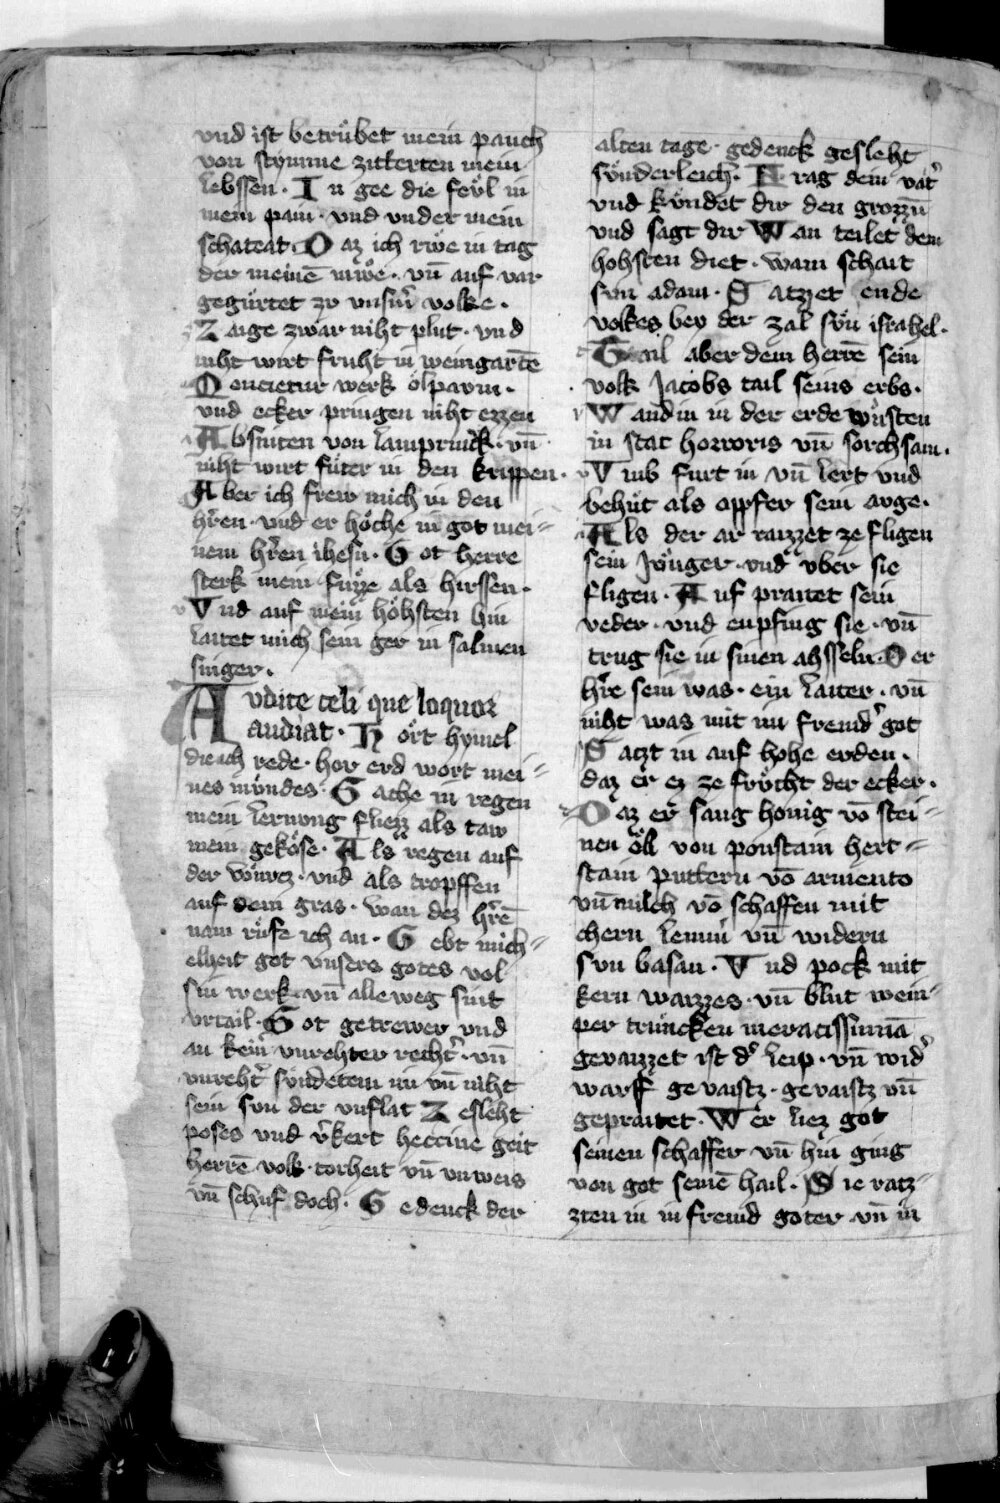 vnd ist betrůbet mein pauch
von stymme zitterten mein
lebssen · In gee die feůl in
mein pain · vnd vnder mein
schateat · Daz ich rwe in tag
der meinē mwe · vn̄ auf var
gegůrtet zv vnsm̄ volke ·
Zaige zwar niht plut · vnd
niht wirt fruht in weingartē
Mencietur werk ölpavm ·
vnd ecker pringen niht ezzen
Absniten von lamprůck · vn̄
niht wirt fůter in den krippen ·
Aber ich frew mich in den
hr̄en · vnd er höche in got mei=
nem hr̄en ihesu · Got herre
sterk mein fuzze als hirssen ·
Vnd auf mein höhsten hin
laitet mich sein ger in salmen
singer ·
Avdite celi que loquor
audiat · Hört hymel
die ich rede · hor erd wort mei=
nes mvndes · Sache in regen
mein lernvng fliezz als taw
mein geköse · Als regen auf
der vöurcz · vnd als tropffen
auf dem gras · wan dez hr̄ē
nam růfe ich an · Gebt mich=
elheit got vnsers gotes vol
sin werk vn̄ alle weg sint
vrtail · Got getrewer vnd
an kein̄ vnrehter reht̄ · vn̄
vnreht̄ sündetem im vn̄ niht
sein svn der vnflat Zesleht
poses vnd v̄kert heccine geit
herrē volk · torheit vn̄ vnweis
vn̄ schuf doch · Gedenck der
alten tage · gedenck gesleht
sönderleich · Frag dein vat̄
vnd kündet dir den grozzn̄
vnd sagt dir Wan teilet dem
hohsten diet · wam schait
svn adam · Satzet ende
volkes bey der zal svn israhel ·
Tail aber dem herrē sein
volk Jacobs tail seins erbs ·
Wand in in der erde wůsten
in stat horroris vn̄ sorchsam ·
Vmb furt in vn̄ lert vnd
behüt als apfer sein avge ·
Als der ar raizzet ze fligen
sein jvnger · vnd vber sie
fligen · Auf praitet sein
veder · vnd enpfing sie · vn̄
trug sie in sinen ahsseln · Der
hr̄e sein was · ein laiter · vn̄
niht was mit im fremd̄ got
Satzt in auf hohe erden ·
daz er ez ze fröcht der ecker ·
Daz er saug honig vō stei=
nen öll von ponstain hert=
stain puttern vō armento
vn̄ milch vō schaffen mit
chern lemm̄ vn̄ widern
svn basan · Vnd pock mit
kern waizzes · vn̄ blut wein=
per trůncken meracissimū
gevaizzet ist d̄ leip · vn̄ wid̄
warff gevaistz · gevaistz vn̄
gepraitet · Wer liez got
seinen schaffer vn̄ hin ging
von got seinē hail · Sie ratz=
zten in in fremd goter vn̄ in